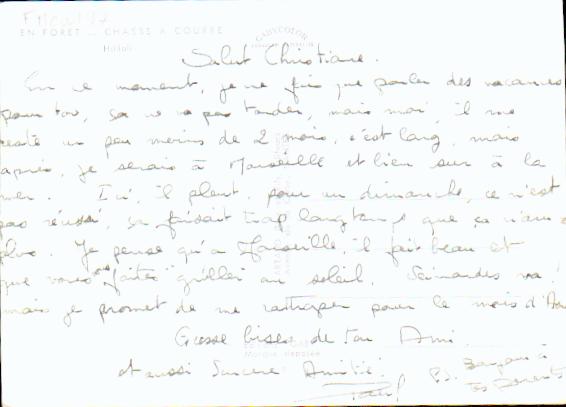 EN FORET ... CHASSE A COURRE
Hallali
GABYCOLOR
Salut Christiane.
En ce moment, je ne fais que parler des vacances
pour toi, sa ne va pas tarder, mais moi, il me
reste un peu moins de 2 mois, c'est lang, mais
après, je serais à Marseille et bien sur à la
mer. Ici, il pleut, pour un dimanche, ce n'est
pas réussi, sa faisait trop langtemps que ça n'avait
plus. Je pense qu'à Marseille, il fait beau et
que vous vous "faites" griller au soleil. Veinardes va!
mais je promet de me rattraper pour le mois d'Août
Grosse bises de ton Ami
et aussi Sincère Amitié.
P.S. Bonjour à
tes Parents
Marque déposée